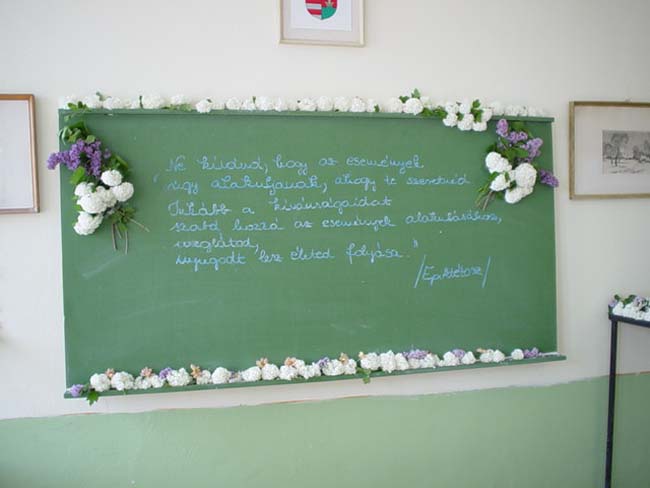 "Ne kívánd, hogy az események
úgy alakuljanak, ahogy te szeretnéd
Inkább a kívánságaidat
szabd hozzá az események alakulásához,
meglátod,
nyugodt lesz életed folyása."
/Epiktétosz/